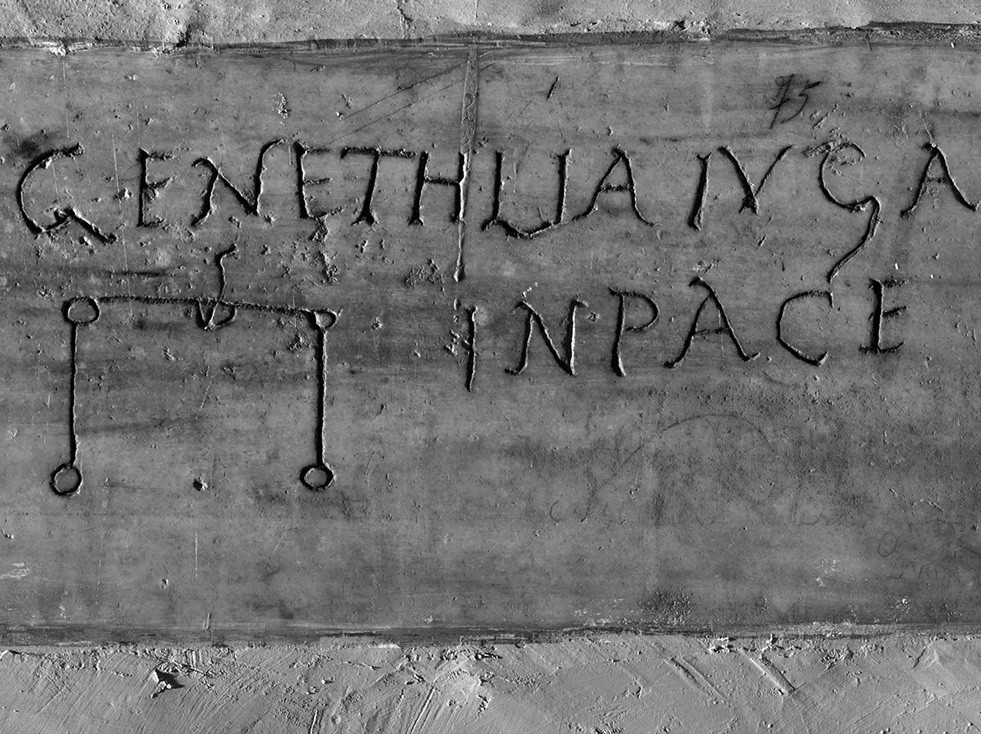 75
GENETHLIA IVGA
IN PACE